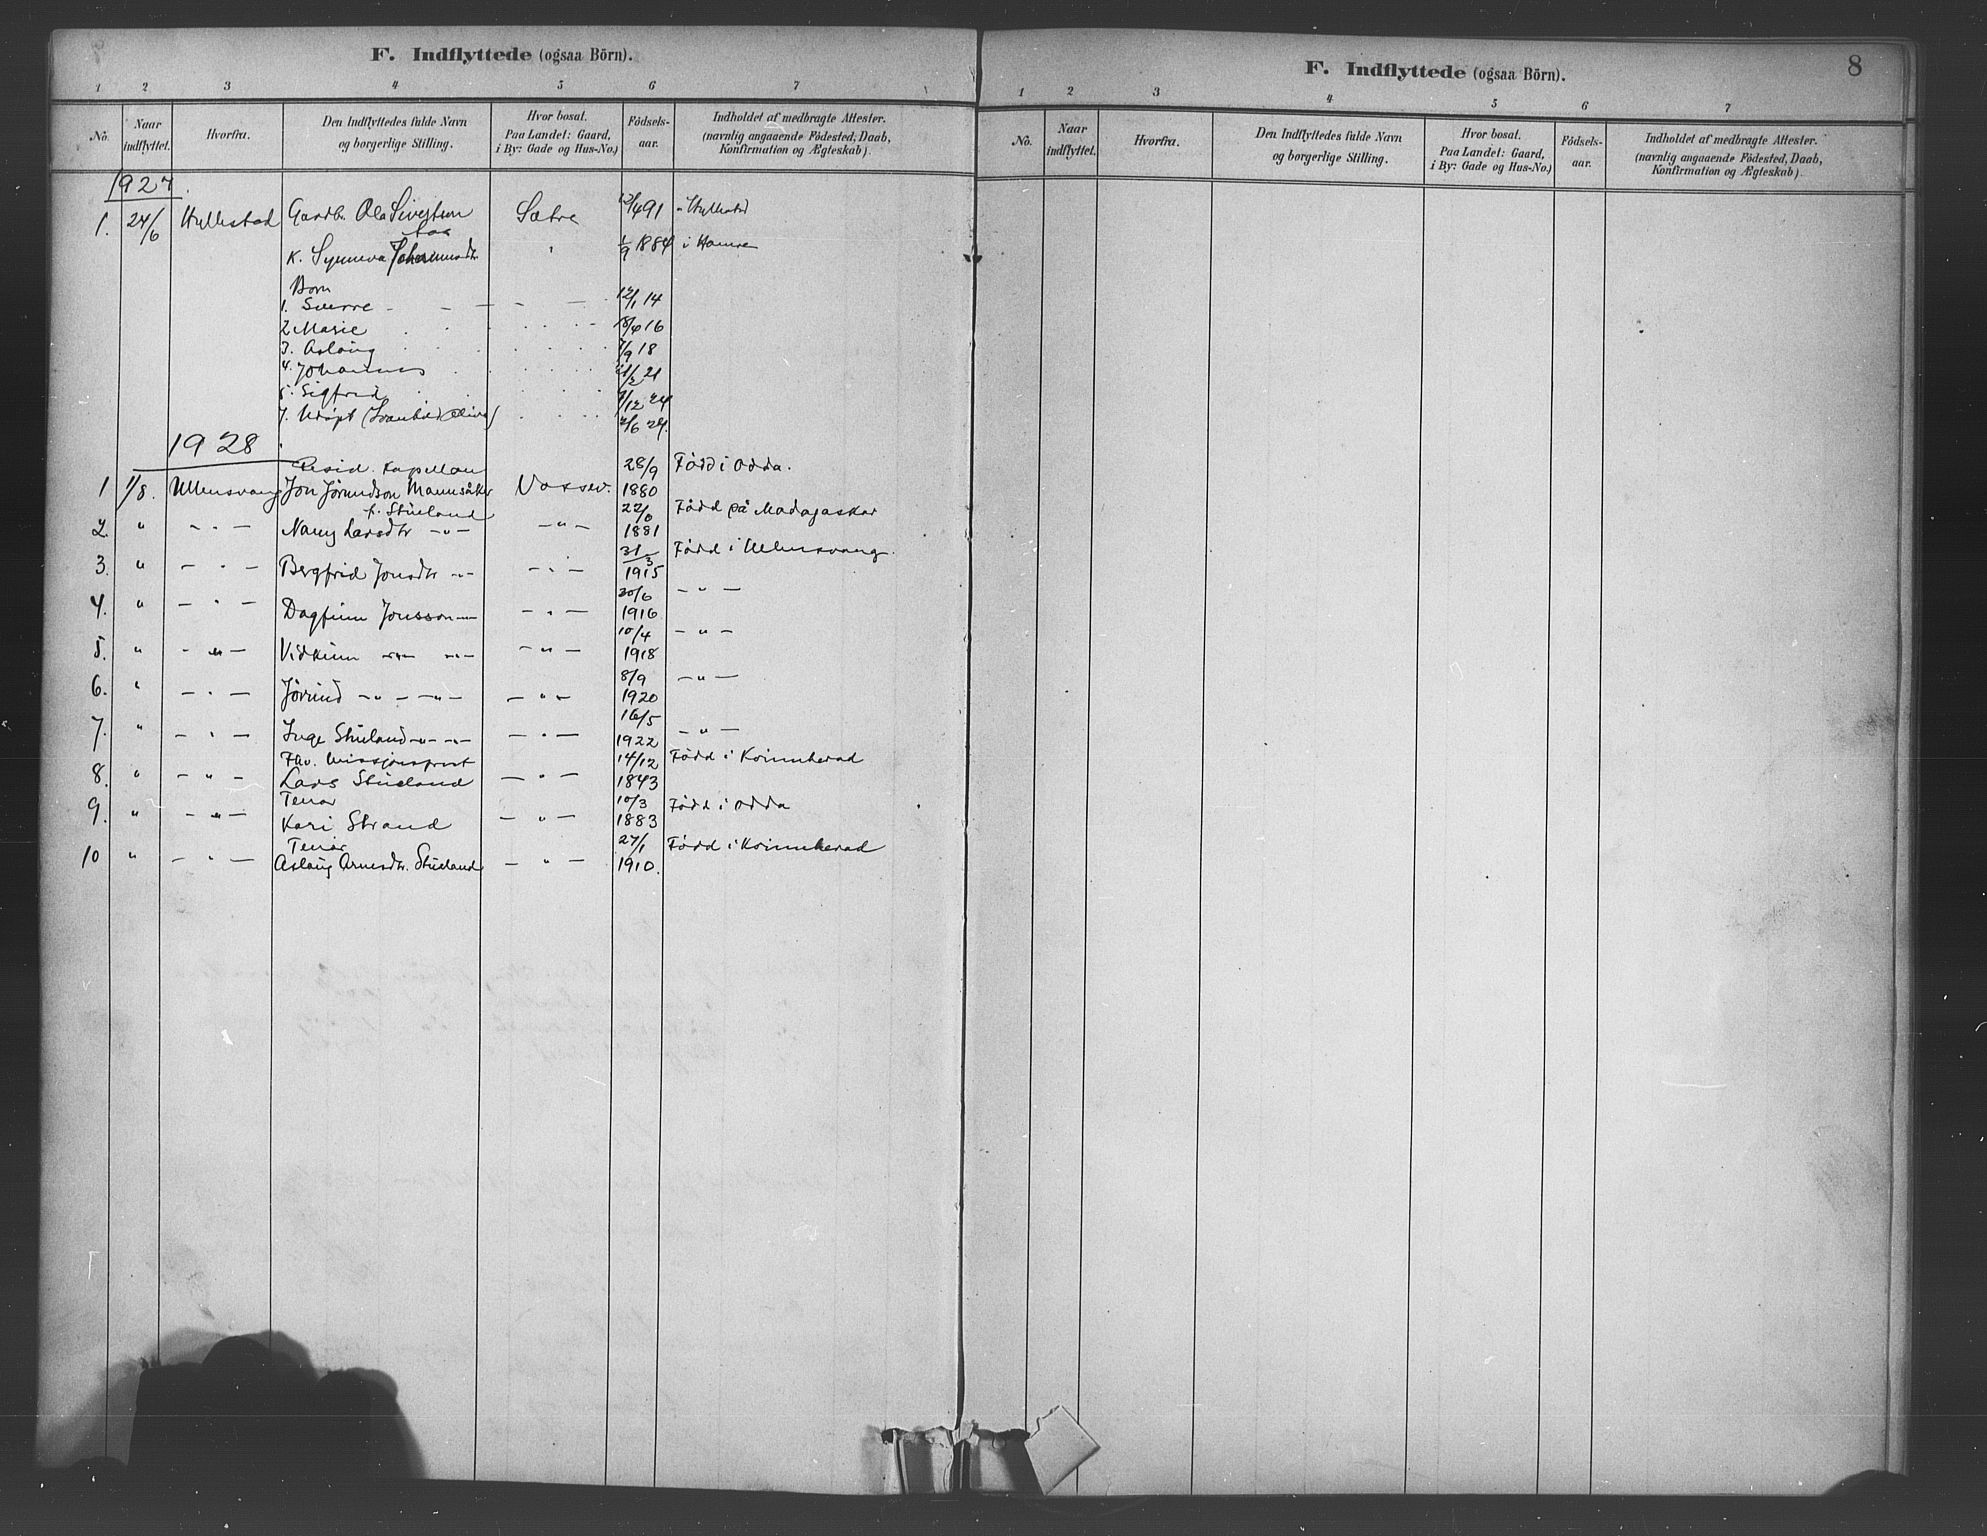 F. Indflyttede (ogsaa Börn).
1 2 3 4 5 6 7
No. Naar indflyttet. Hvorfra. Den Indflyttedes fulde Navn og borgerlige Stilling. Hvor bosat. Paa Landet: Gaard, i By: Gade og Hus-No.) Födsels-aar. Indholdet af medbragte Attester. (navnlig angaaende Födested, Daab, Konfirmation og Ægteskab).
1927.
1. 24/6 Hyllestad Gaardbr. Ola Sivertsen Sætre 12/4 91 i Hyllestad
K. Synneva Johannesdtr " 1/9 1884 i Hamre
Born
1. Sverre - - - - - 12/1 14
2. Marie 18/4 16
3. Aslaug 7/9 18
4. Johannes 21/2 21
5. Sigfrid 7/12 24
7. Udøpt 2/6 27.
1928
Resid. Kapellan 28/9 Fødd i Odda.
1 1/8. Ullensvang Jon Jørundson Mannsåker Vossev. 1880
f. Stueland 22/ Fødd på Madagaskar
2. " - " - Nanny Larsdtr - " - - " - 1881
31/3 Fødd i Ullensvang.
3. " - " - Bergfrid Jonsdtr - " - - " - 1915
20/6 - " -
4. " - " - Dagfinn Jonsson - " - - " - 1916
10/4 - " -
5. " - " - Vidkunn - " - - " - - " - 1918
8/9 - " -
6. " - " - Jørund - " - - " - - " - 1920
16/5
7. " - " - Inge Stueland - " - - " - - " - 1922 - " -
Fhv. misjonsprest 14/12 Fødd i Kvinnherad
8. " - " - Lars Stueland - " - 1843
Tenar 10/3 Fødd i Odda
9. " - " - Kari Strand - " - 1883
Tenar 27/1 Fødd i Kvinnherad
10 " - " - Aslaug Arnesdtr. Stueland - " - 1910.
F. Indflyttede (ogsaa Börn). 8
1 2 3 4 5 6 7
No. Naar indflyttet. Hvorfra. Den Indflyttedes fulde Navn og borgerlige Stilling. Hvor bosat. Paa Landet: Gaard, i By: Gade og Hus-No.) Födsels-aar. Indholdet af medbragte Attester. (navnlig angaaende Födested, Daab, Konfirmation og Ægteskab).